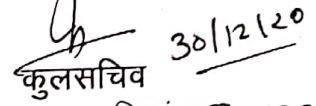 30/12/20
कुलसचिव